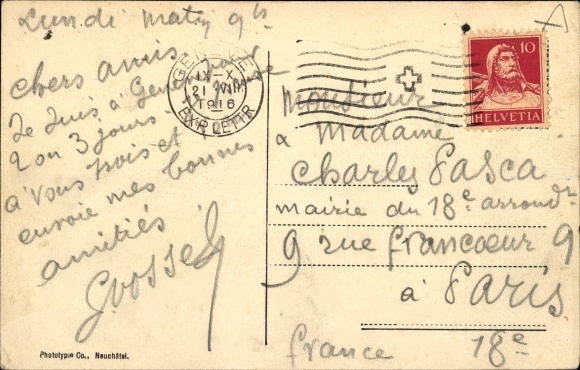 Lundi matin 9 h
chers amis
Je suis à Genève pour
2 ou 3 jours
à vous pois et
envoie mes bonnes
amitiés
GENÈVE
IX-X
21 VIII
1916
EXP. LETTR.
10
HELVETIA
Monsieur
& Madame
Charles Pasca
mairie du 18e arrondt
9 rue francœur 9
à Paris
france 18e
Phototypie Co., Neuchâtel.